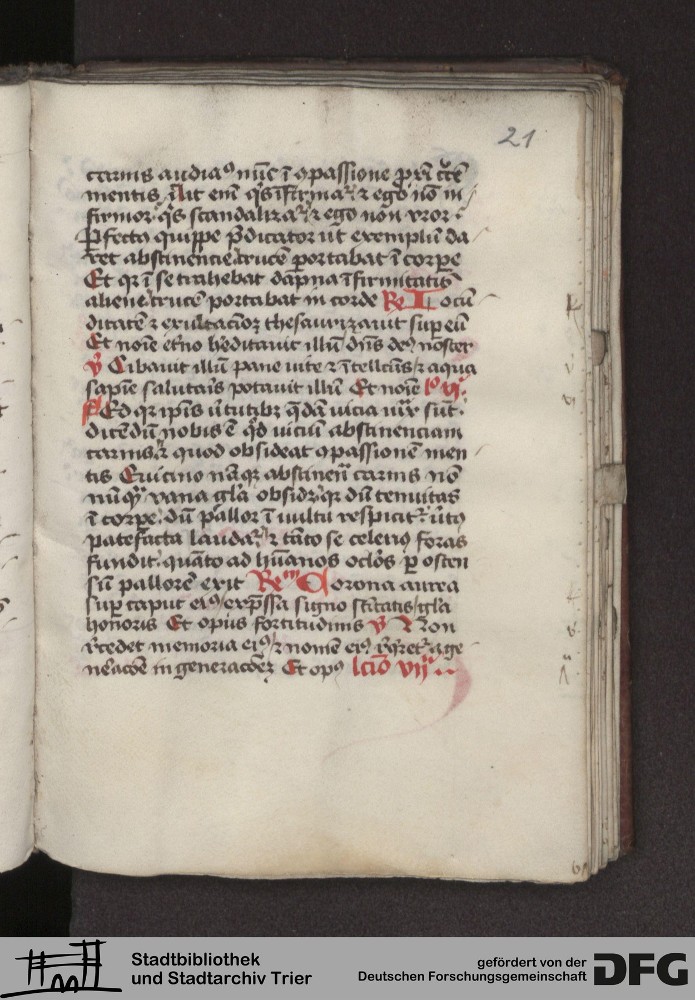 21
carnis audiaꝰ nūc ī ɔpassione prī cītē
mentis Ait em̄ qͥs īfirmaꝉ ⁊ ego nō in
firmor qͥs scandalizaꝉ ⁊ ego non vror
Pfecto quippe p̄dicator ut exemplū da
ret abstinencie crucē portabat ī corpe
Et qꝛ ī se trahebat dāpna īfirmitatis
aliene crucē portabat in corde Re Iocū
ditatē ⁊ exultacioꝫ thesaurizauit sup eū
Et noīe et̄no h̄editauit illū dn̄s deꝰ noster
v̄ Cibauit illū pane uite ⁊ ītellcūs ⁊ aqua
sapīe salutaīs potauit illū Et noīe lo vi
Sed qꝛ ip̄is v̄tutibꝫ qͣdā uicia iūx sūt
dicēdū nobis ē qd̄ uiciū abstinenciam
carnis ⁊ quod obsideat ɔpassionem men
tis Euicino nāqꝫ abstinen̄ carnis nō
nūqͣꝫ vana gl̄a obsidꝫ qꝛ dū tenuitas
ī corpe dū pallor ī uultu respicitꝛ v̄tꝰ
patefacta laudaꝉ ⁊ tāto se celerius foras
fundit quāto ad hūanos oclōs p osten
sū pallorē exit Rem Corona aurea
sup caput eiꝰ exp̄ssa signo sc̄itatis gl̄a
honoris Et opus fortitudinis v̄ Non
r̄cedet memoria eiꝰ ⁊ nomē eiꝰ r̄qͥretꝛ a ge
neracōē in generacōeꝫ Et opꝰ lcīo vij
Stadtbibliothek
und Stadtarchiv Trier
gefördert von der
Deutschen Forschungsgemeinschaft
DFG